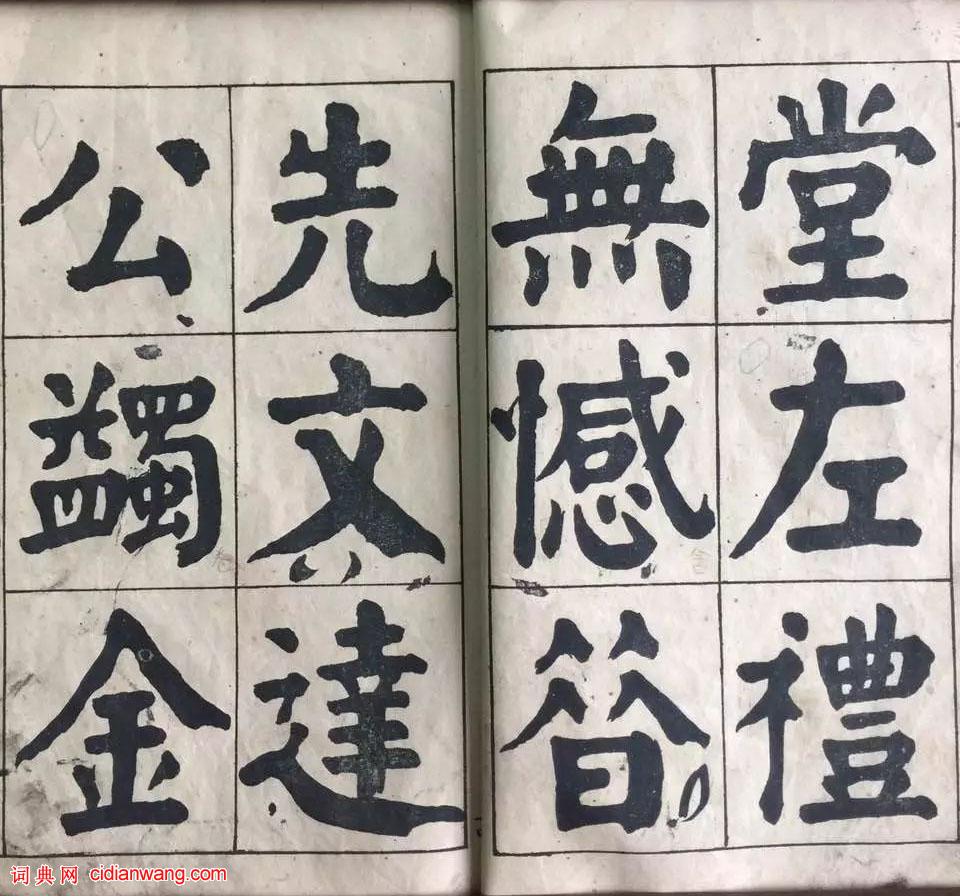 堂左禮
無憾昔
先文達
公蠲金
词典网 cidianwang.com